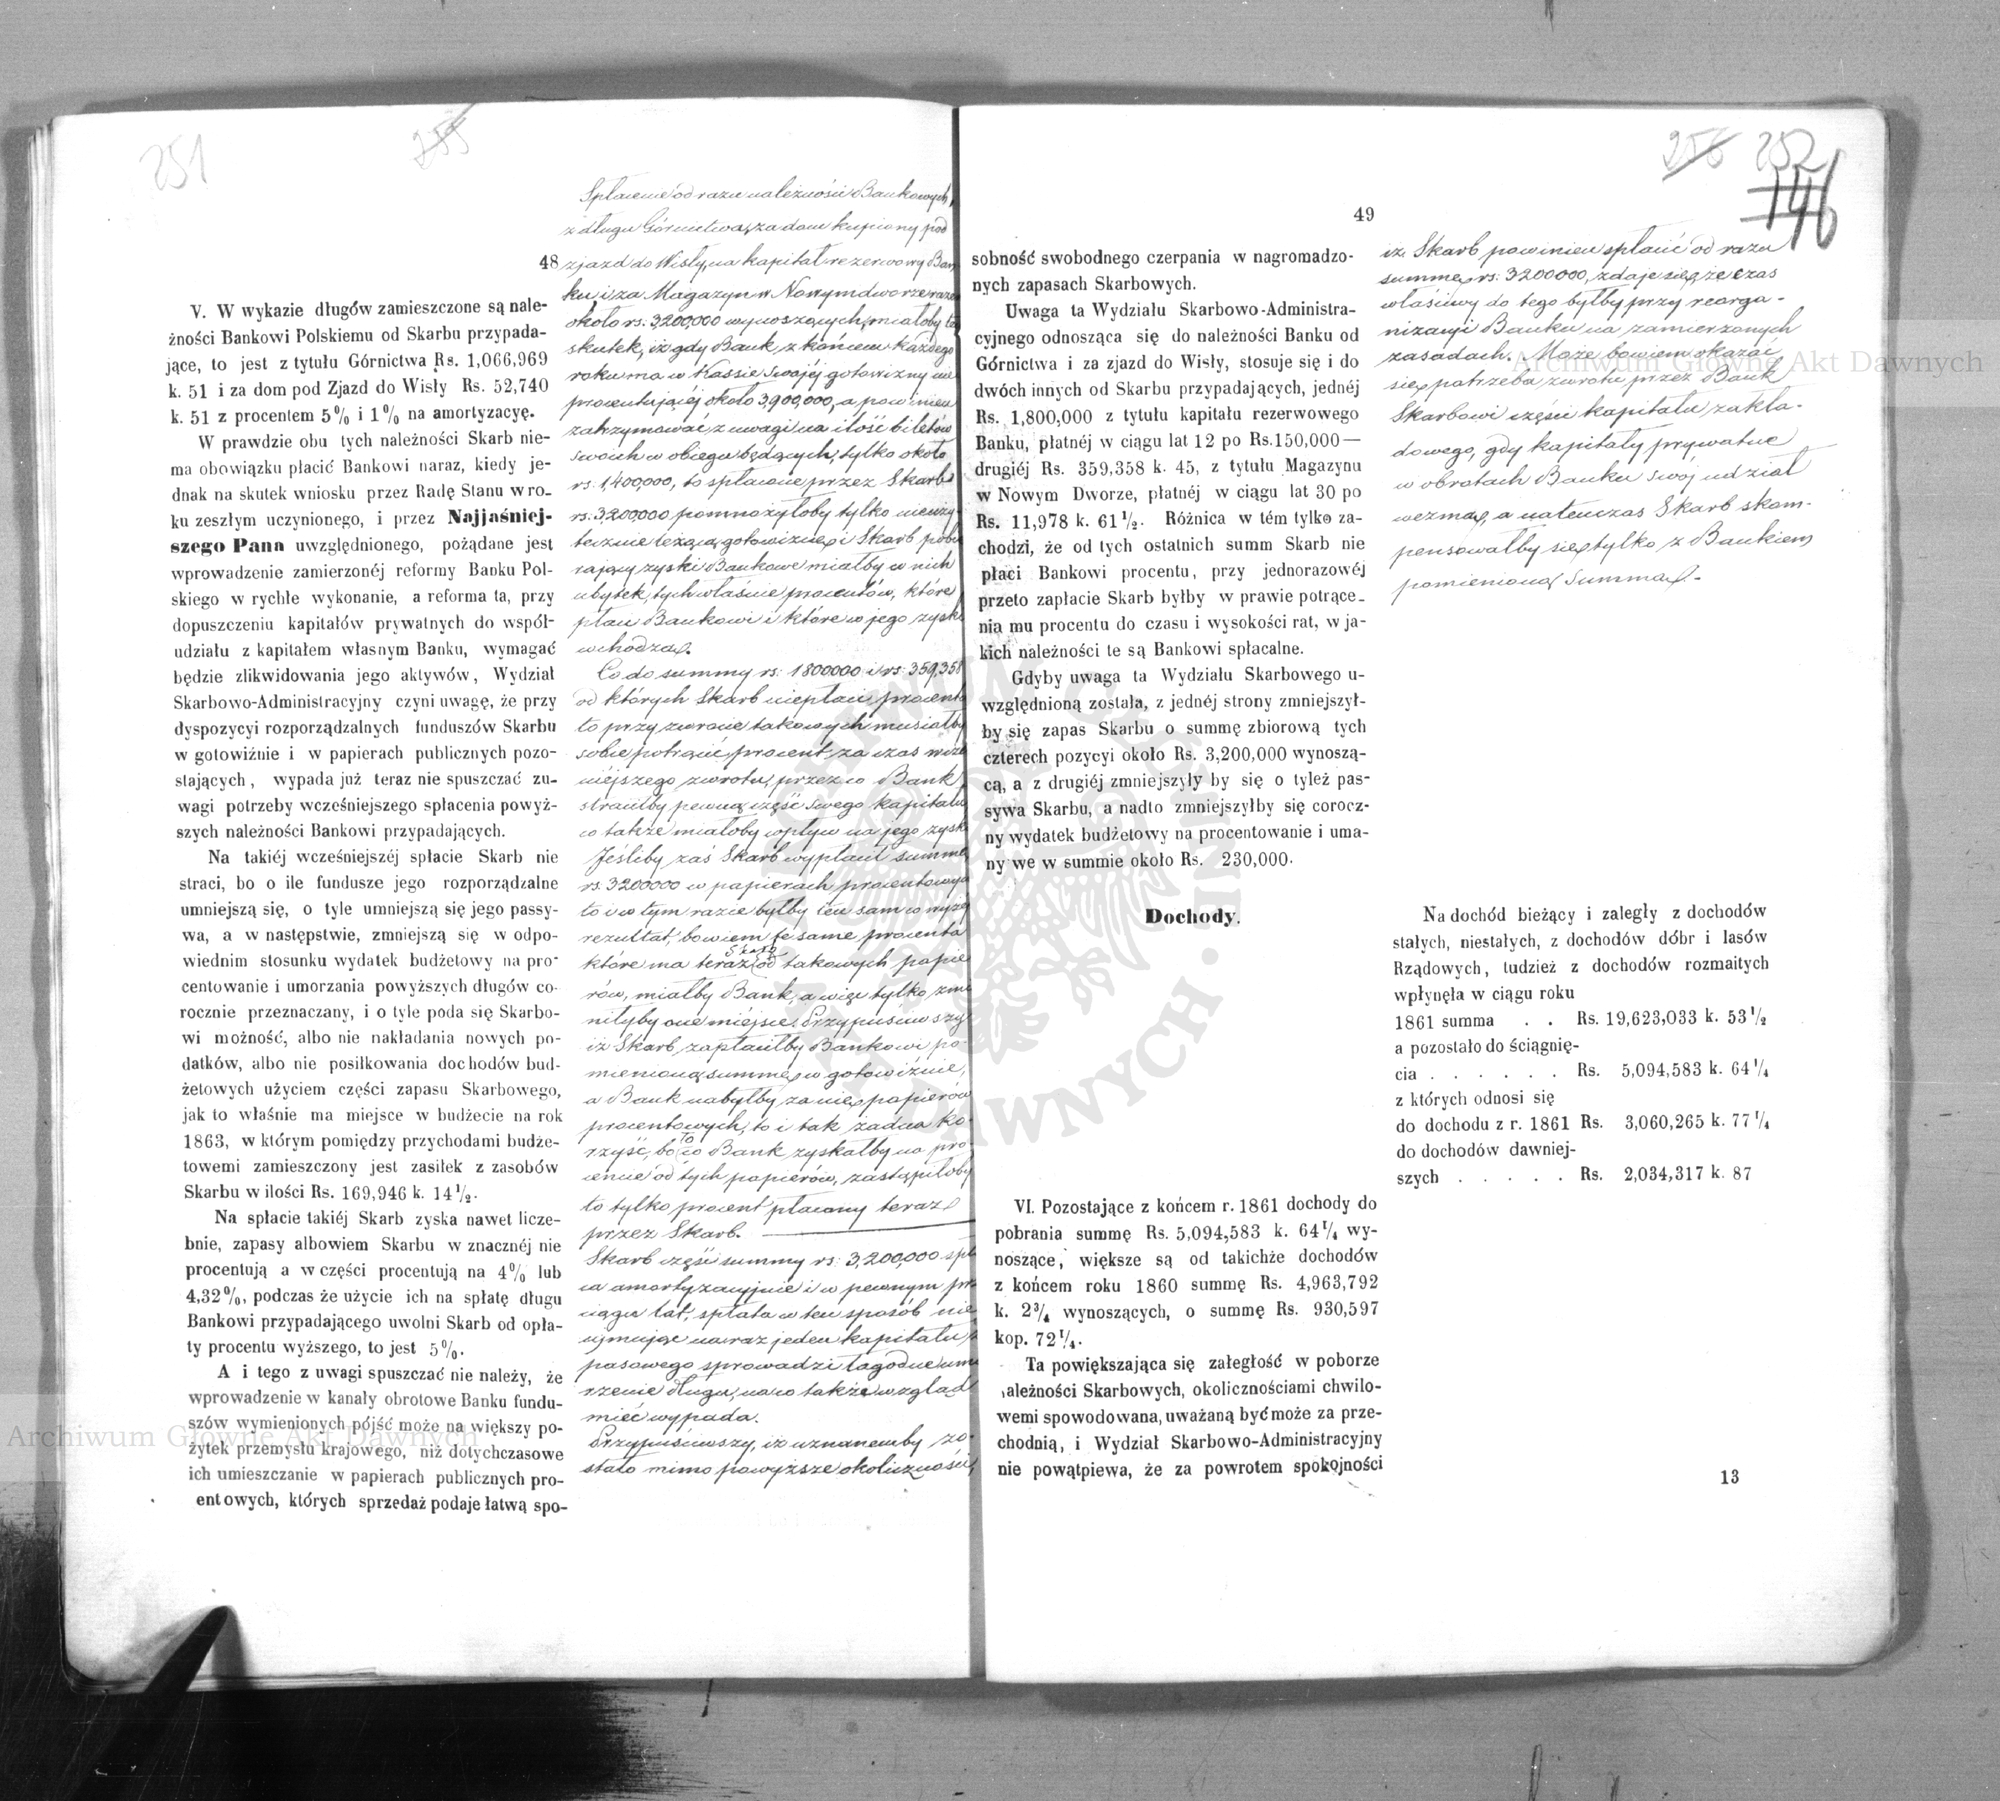 251
255
48
V. W wykazie długów zamieszczone są nale-
żności Bankowi Polskiemu od Skarbu przypada-
jące, to jest z tytułu Górnictwa Rs. 1,066,969
k. 51 i za dom pod Zjazd do Wisły Rs. 52,740
k. 51 z procentem 5% i 1% na amortyzacyę.
W prawdzie obu tych należności Skarb nie-
ma obowiązku płacić Bankowi naraz, kiedy je-
dnak na skutek wniosku przez Radę Stanu w ro-
ku zeszłym uczynionego, i przez Najjaśniej-
szego Pana uwzględnionego, pożądane jest
wprowadzenie zamierzonéj reformy Banku Pol-
skiego w rychłe wykonanie, a reforma ta, przy
dopuszczeniu kapitałów prywatnych do współ-
udziału z kapitałem własnym Banku, wymagać
będzie zlikwidowania jego aktywów, Wydział
Skarbowo-Administracyjny czyni uwagę, że przy
dyspozycyi rozporządzalnych funduszów Skarbu
w gotowiźnie i w papierach publicznych pozo-
stających, wypada już teraz nie spuszczać zu-
wagi potrzeby wcześniejszego spłacenia powyż-
szych należności Bankowi przypadających.
Na takiéj wcześniejszéj spłacie Skarb nie
straci, bo o ile fundusze jego rozporządzalne
umniejszą się, o tyle umniejszą się jego passy-
wa, a w następstwie, zmniejszą się w odpo-
wiednim stosunku wydatek budżetowy na pro-
centowanie i umorzania powyższych długów co-
rocznie przeznaczany, i o tyle poda się Skarbo-
wi możność, albo nie nakładania nowych po-
datków, albo nie posiłkowania dochodów bud-
żetowych użyciem części zapasu Skarbowego,
jak to właśnie ma miejsce w budżecie na rok
1863, w którym pomiędzy przychodami budże-
towemi zamieszczony jest zasiłek z zasobów
Skarbu w ilości Rs. 169,946 k. 14½.
Na spłacie takiéj Skarb zyska nawet licze-
bnie, zapasy albowiem Skarbu w znacznéj nie
procentują a w części procentują na 4% lub
4,32%, podczas że użycie ich na spłatę długu
Bankowi przypadającego uwolni Skarb od opła-
ty procentu wyższego, to jest 5%.
A i tego z uwagi spuszczać nie należy, że
wprowadzenie w kanały obrotowe Banku fundu-
szów wymienionych pójść może na większy po-
żytek przemysłu krajowego, niż dotychczasowe
ich umieszczanie w papierach publicznych pro-
entowych, których sprzedaż podaje łatwą spo-
Spłacenie od razu należności Bankowych,
z długu Górnictwa, za dom kupiony pod
zjazd do Wisły, na kapitał rezerwowy Ban
ku i za Magazyn w Nowym dworze razem
około rs. 3,200,000 wynoszących, miałoby ten
skutek, iż gdy Bank z końcem każdego
roku ma w Kassie swojéj gotowizny nie
procentującéj około 3,900,000, a powinien
zatrzymować z uwagi na ilość biletów
swoich w obiegu będących, tylko około
rs. 1,400,000, to spłacone przez Skarb
rs. 3,200,000 pomnożyłoby tylko nieuży-
tecznie leżącą gotowiznę, i Skarb pobie
rający zyski Bankowe miałby w nich
ubytek, tych właśnie procentów, które
płaci Bankowi i które w jego zyski
wchodzą.
Co do summy rs. 1800000 i rs. 359,358
od których Skarb niepłaci procentu
to przy zwrocie takowych musiałby
sobie potrącić procent za czas wcze
śniejszego zwrotu, przez co Bank
straciłby pewną część swego kapitału
co także miałoby wpływ na jego zysk
Jeśliby zaś Skarb wypłacił summę
rs. 3200000 w papierach procentowych
to i w tym razie byłby ten sam co wyżej
rezultat, bowiem te same procenta
które ma teraz Skarb od takowych papie
rów, miałby Bank, a więc tylko zmie
niłyby one miejsce. Przypuściwszy
iż Skarb zapłaciłby Bankowi po-
mienioną summę w gotowiźnie,
a Bank nabyłby za nią papierów
procentowych, to i tak żadna ko-
rzyść, bo to co Bank zyskałby na pro
cencie od tych papierów, zastąpiłoby
to tylko procent płacony teraz
przez Skarb.
Skarb część summy rs. 3,200,000 spła
ca amortyzacyjnie i w pewnym prze
ciągu lat, spłata w ten sposób nie
ujmując naraz jeden kapitału za
pasowego sprowadzi łagodne umo
rzenie długu, na co także wzgląd
mieć wypada.
Przypuściwszy, iż uznanemby zo-
stało mimo powyższe okoliczności,
256 252
146
49
sobność swobodnego czerpania w nagromadzo-
nych zapasach Skarbowych.
Uwaga ta Wydziału Skarbowo-Administra-
cyjnego odnosząca się do należności Banku od
Górnictwa i za zjazd do Wisły, stosuje się i do
dwóch innych od Skarbu przypadających, jednéj
Rs. 1,800,000 z tytułu kapitału rezerwowego
Banku, płatnéj w ciągu lat 12 po Rs. 150,000—
drugiéj Rs. 359,358 k. 45, z tytułu Magazynu
w Nowym Dworze, płatnéj w ciągu lat 30 po
Rs. 11,978 k. 61½. Różnica w tém tylko za-
chodzi, że od tych ostatnich summ Skarb nie
płaci Bankowi procentu, przy jednorazowéj
przeto zapłacie Skarb byłby w prawie potrące-
nia mu procentu do czasu i wysokości rat, w ja-
kich należności te są Bankowi spłacalne.
Gdyby uwaga ta Wydziału Skarbowego u-
względnioną została, z jednéj strony zmniejszył-
by się zapas Skarbu o summę zbiorową tych
czterech pozycyi około Rs. 3,200,000 wynoszą-
cą, a z drugiéj zmniejszyły by się o tyleż pas-
sywa Skarbu, a nadto zmniejszyłby się corocz-
ny wydatek budżetowy na procentowanie i uma-
ny we w summie około Rs. 230,000.
Dochody.
VI. Pozostające z końcem r. 1861 dochody do
pobrania summę Rs. 5,094,583 k. 64¼ wy-
noszące, większe są od takichże dochodów
z końcem roku 1860 summę Rs. 4,963,792
k. 2¾ wynoszących, o summę Rs. 930,597
kop. 72¼.
Ta powiększająca się załegłość w poborze
ależności Skarbowych, okolicznościami chwilo-
wemi spowodowana, uważaną być może za prze-
chodnią, i Wydział Skarbowo-Administracyjny
nie powątpiewa, że za powrotem spokojności
iż Skarb powinien spłacić od razu
summę rs. 3200000, zdaje się, że czas
właściwy do tego byłby przy reorga-
nizacyi Banku na zamierzonych
zasadach. Może bowiem okazać
się potrzeba zwrotu przez Bank
Skarbowi części kapitału zakła-
dowego, gdy kapitały prywatne
w obrotach Banku swój udział
wezmą, a natenczas Skarb skom-
pensowałby się tylko z Bankiem
pomienioną summą.-
Na dochód bieżący i zaległy z dochodów
stałych, niestałych, z dochodów dóbr i lasów
Rządowych, tudzież z dochodów rozmaitych
wpłynęła w ciągu roku
1861 summa . . Rs. 19,623,033 k. 53½
a pozostało do ściągnię-
cia . . . . . . Rs. 5,094,583 k. 64¼
z których odnosi się
do dochodu z r. 1861 Rs. 3,060,265 k. 77¼
do dochodów dawniej-
szych . . . . . Rs. 2,034,317 k. 87
13
Archiwum Główne Akt Dawnych
Archiwum Główne Akt Dawnych